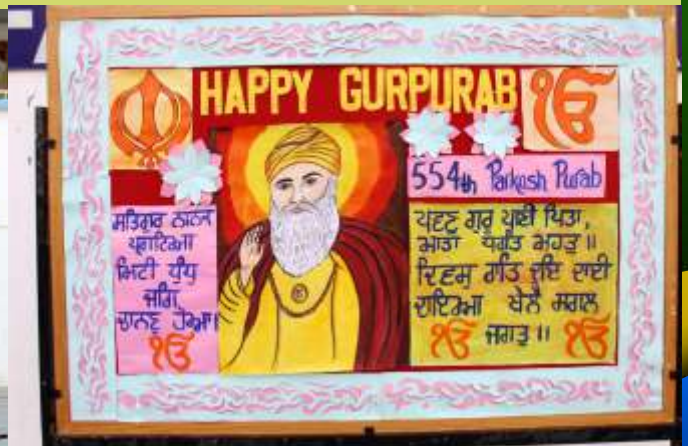 HAPPY GURPURAB
ੴ
554th Parkash Purab
ਸਤਿਗੁਰ ਨਾਨਕ
ਪ੍ਰਗਟਿਆ
ਮਿਟੀ ਧੁੰਧ
ਜਗਿ
ਚਾਨਣ ਹੋਆ।
ੴ
ਪਵਣੁ ਗੁਰੂ ਪਾਣੀ ਪਿਤਾ,
ਮਾਤਾ ਧਰਤਿ ਮਹਤੁ॥
ਦਿਵਸੁ ਰਾਤਿ ਦੁਇ ਦਾਈ
ਦਾਇਆ ਖੇਲੈ ਸਗਲ
ੴ ਜਗਤੁ॥ ੴ